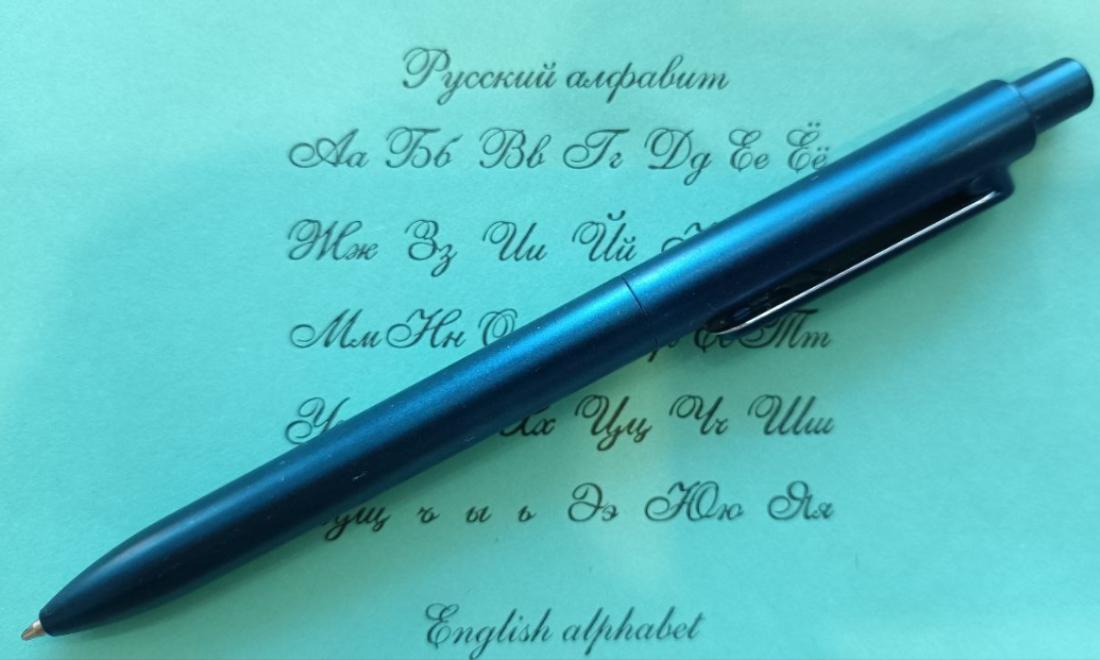 Русский алфавит
Аа Бб Вв Гг Дд Ее Ёё
Жж Зз Ии Йй
Мм Нн Тт
Хх Цц Чч Шш
ъ ы ь Ээ Юю Яя
English alphabet